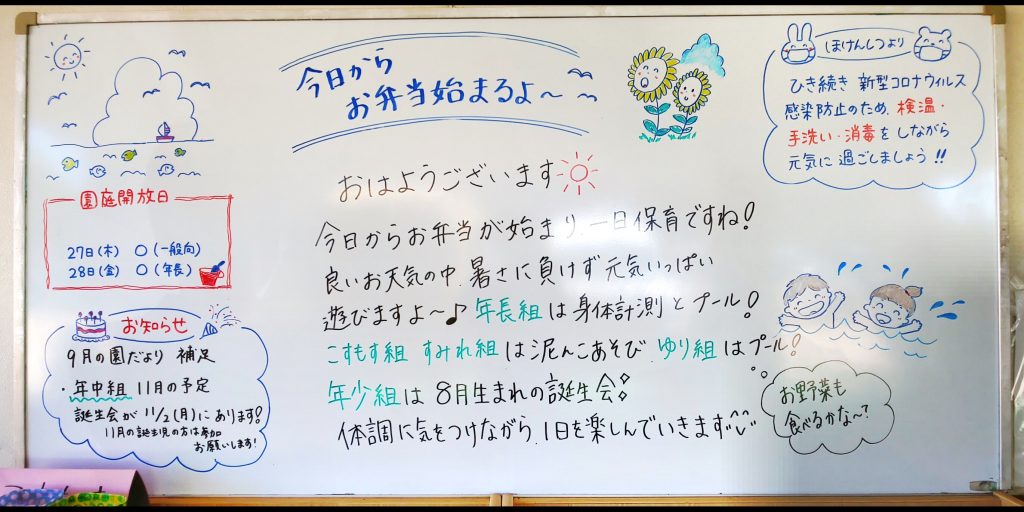 今日から
お弁当始まるよ～
ほけんしつより
ひき続き 新型コロナウィルス
感染防止のため、検温・
手洗い・消毒をしながら
元気に過ごしましょう!!
園庭開放日
27日(木) ○(一般向)
28日(金) ○(年長)
お知らせ
9月の園だより 補足
・年中組 11月の予定
誕生会が 11/2(月)にあります!
11月の誕生児の方は参加
お願いします!
おはようございます
今日からお弁当が始まり、一日保育ですね!
良いお天気の中、暑さに負けず元気いっぱい
遊びますよ～♪ 年長組は身体計測とプール!
こすもす組 すみれ組は泥んこあそび、ゆり組はプール!
年少組は8月生まれの誕生会
体調に気をつけながら、1日を楽しんでいきます
お野菜も
食べるかな～?